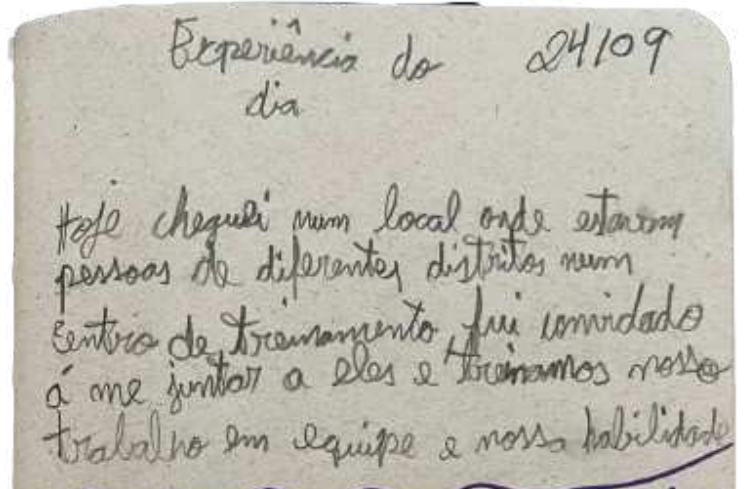 Experiência do 24/09
dia
Hoje cheguei num local onde estavam
pessoas de diferentes distritos num
centro de treinamento fui convidado
á me juntar a eles e treinamos nosso
trabalho em equipe e nossa habilidade